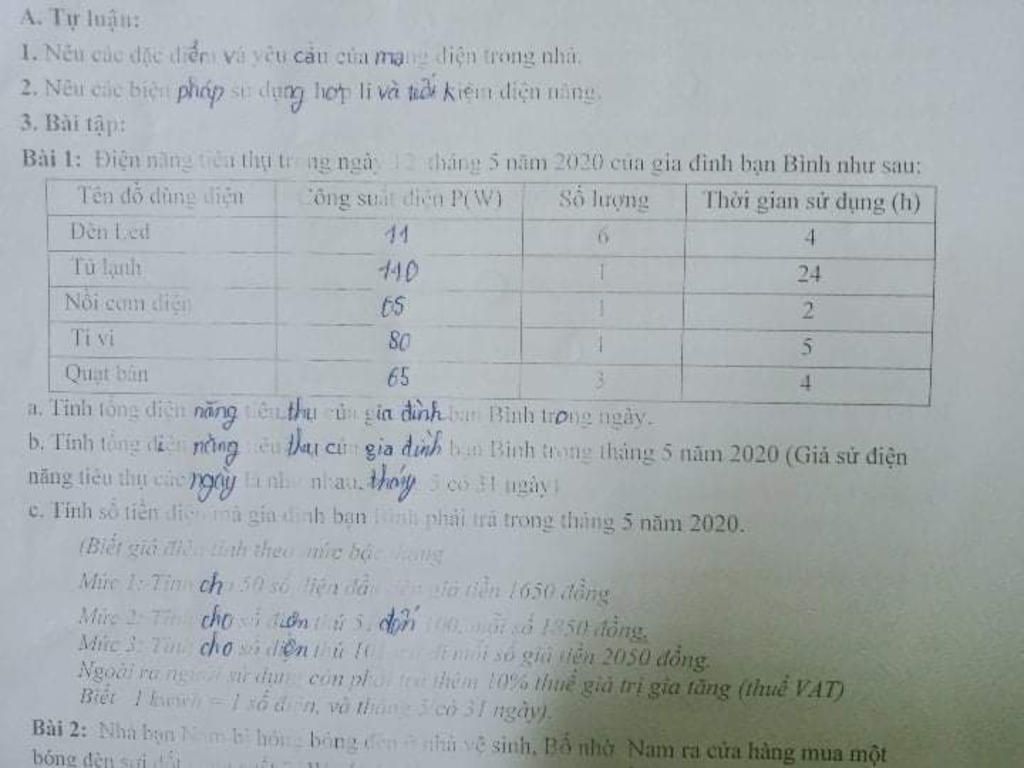 A. Tự luận:
1. Nêu các đặc điểm và yêu cầu của mạng điện trong nhà.
2. Nêu các biện pháp sử dụng hợp lí và tiết kiệm điện năng.
3. Bài tập:
Bài 1: Điện năng tiêu thụ trong ngày 12 tháng 5 năm 2020 của gia đình bạn Bình như sau:
Tên đồ dùng điện Công suất điện P(W) Số lượng Thời gian sử dụng (h)
Đèn Led 11 6 4
Tủ lạnh 110 1 24
Nồi cơm điện 65 1 2
Ti vi 80 1 5
Quạt bàn 65 3 4
a. Tính tổng điện năng tiêu thụ của gia đình bạn Bình trong ngày.
b. Tính tổng điện năng tiêu thụ của gia đình bạn Bình trong tháng 5 năm 2020 (Giả sử điện
năng tiêu thụ các ngày là như nhau, tháng 5 có 31 ngày)
c. Tính số tiền điện mà gia đình bạn Bình phải trả trong tháng 5 năm 2020.
(Biết giá điện tính theo mức bậc thang
Mức 1: Tính cho 50 số điện đầu tiên giá tiền 1650 đồng
Mức 2: Tính cho số điện thứ 51 đến 100, mỗi số 1850 đồng.
Mức 3: Tính cho số điện thứ 101 trở đi mỗi số giá tiền 2050 đồng.
Ngoài ra người sử dụng còn phải trả thêm 10% thuế giá trị gia tăng (thuế VAT)
Biết 1 = 1 số điện, và tháng 5 có 31 ngày).
Bài 2: Nhà bạn Nam bị hỏng bóng đèn ở nhà vệ sinh, Bố nhờ Nam ra cửa hàng mua một
bóng đèn sợi đốt